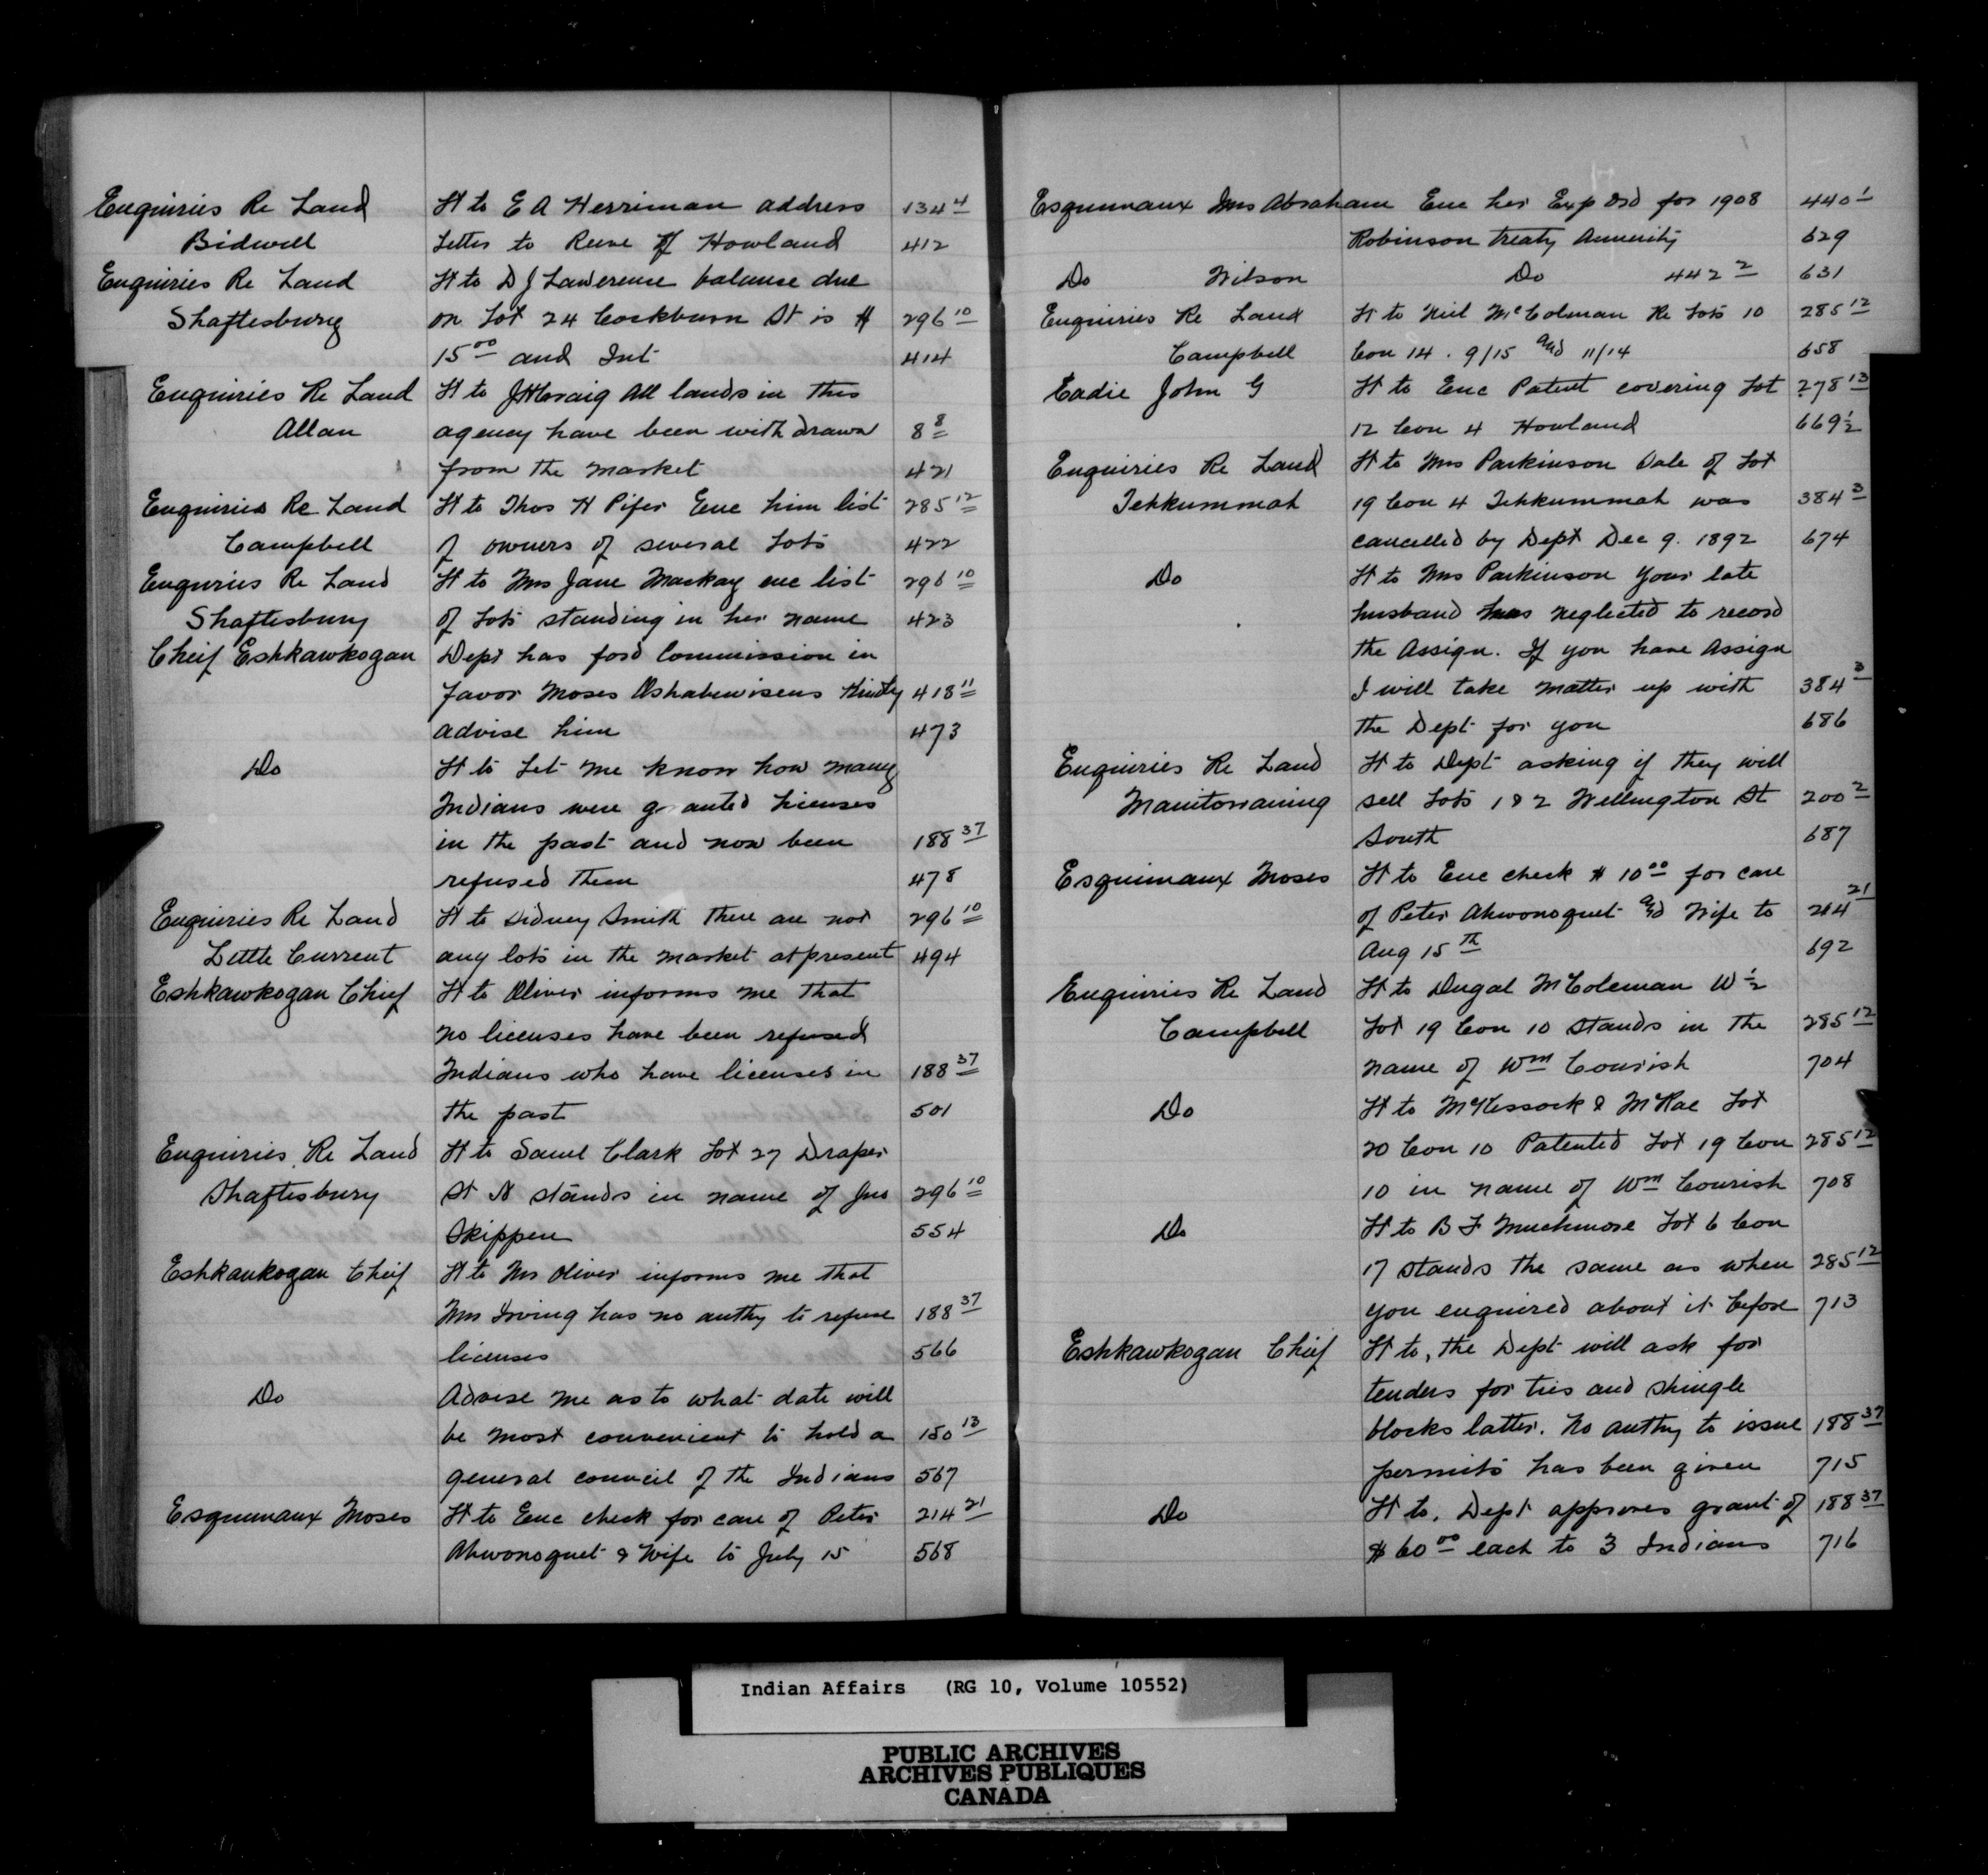 Enquiries Re Land Lt to E A Herriman address 134 4
Bidwell Letter to Reeve of Howland 412
Enquiries Re Land Lt to D J Lawerence balance due
Shaftesburg on Lot 24 Cockburn St is $ 296 10
15 00 and Int 414
Enquiries Re Land Lt to J H Craig All lands in this
Allan agency have been withdrawn 8 8
from the market 421
Enquiries Re Land Lt to Thos H Pifer Enc him list 285 12
Campbell of owners of several Lots 422
Enquries Re Land Lt to Mrs Jane Mackay enc list 296 10
Shaftesbury of Lots standing in her name 423
Cheif Eshkawkogan Dept has ford Commission in
favor Moses kindly 418 11
advise him 473
Do Lt to Let me know how many
Indians were granted licenses
in the past and now been 188 37
refused them 478
Enquiries Re Land Lt to Sidney Smith there are not 296 10
Little Current any lots in the market at present 494
Eshkawkogan Chief Lt to Oliver informs me that
no licenses have been refused
Indians who have licenses in 188 37
the past 501
Enquiries Re Land Lt to Saml Clark Lot 27 Draper
Shaftesbury St N stands in name of Jno 296 10
Skippen 554
Eshkaukogan Cheif Lt to Mr Oliver informs me that
Mr Irving has no authy to refuse 188 37
licenses 566
Do Advise me as to what date will
be most convenient to hold a 150 13
general council of the Indians 567
Esquimaux Moses Lt to Enc check for care of Peter 214 21
Ahwonoquet & Wife to July 15 568
Esquimaux Mrs Abraham Enc her Exp Ord for 1908 440 1
Robinson Treaty Annuity 629
Do Wilson Do 442 2 631
Enquiries Re Land Lt to Neil McColman Re Lots 10 285 12
Campbell Con 14 . 9/15 and 11/14 658
Eadie John G Lt to Enc Patent covering Lot 278 13
12 Con 4 Howland 669½
Enquiries Re Land Lt to Mrs Parkinson Sale of Lot
Tehkummah 19 Con 4 Tehkummah was 384 3
cancelled by Dept Dec 9. 1892 674
Do Lt to Mrs Parkinson Your late
husband has neglected to record
the Assign. If you have Assign
I will take matter up with 384 3
the Dept for you 686
Enquiries Re Land Lt to Dept asking if they will
Manitowaning sell Lots 1 & 2 Wellington St 200 2
South 687
Esquimaux Moses Lt to Enc check $ 10 00 for care
of Peter Ahwonoquet and Wife to 214 21
Aug 15 Th 692
Enquiries Re Land Lt to Dugal McColeman W½
Campbell Lot 19 Con 10 stands in the 285 12
name of Wm Courish 704
Do Lt to McKessock & McRae Lot
20 Con 10 Patented Lot 19 Con 285 12
10 in name of Wm Courish 708
Do Lt to B F Muchmore Lot 6 Con
17 stands the same as when 285 12
you enquired about it before 713
Eshkawkogan Chief Lt to, the Dept will ask for
tenders for ties and shingle
blocks latter. No authy to issue 188 37
permits has been given 715
Do Lt to, Dept approves grant of 188 37
$ 60 00 each to 3 Indians 716
Indian Affairs (RG 10, Volume 10552)
PUBLIC ARCHIVES
ARCHIVES PUBLIQUES
CANADA